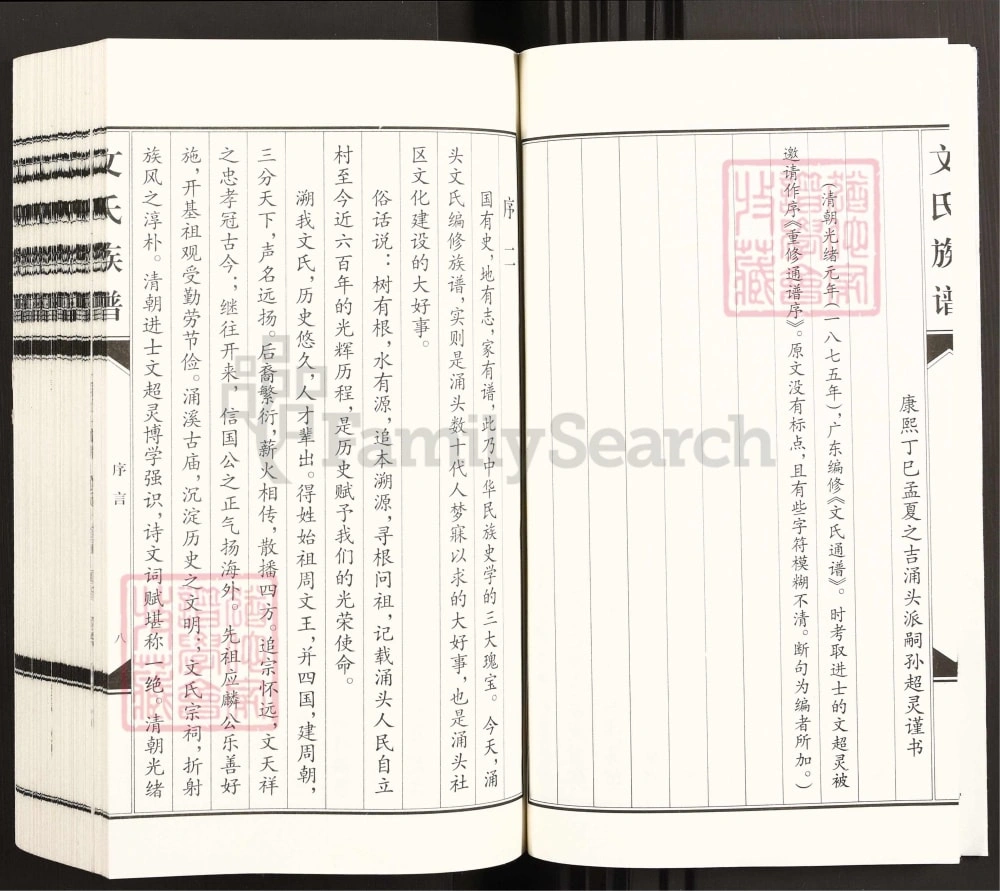 文氏族谱
康熙丁巳孟夏之吉涌头派嗣孙超灵谨书
（清朝光绪元年（一八七五年），广东编修《文氏通谱》。时考取进士的文超灵被
邀请作序《重修通谱序》。原文没有标点，且有些字符模糊不清。断句为编者所加。）
序二
国有史，地有志，家有谱，此乃中华民族史学的三大瑰宝。今天，涌
头文氏编修族谱，实则是涌头数十代人梦寐以求的大好事，也是涌头社
区文化建设的大好事。
俗话说：树有根，水有源，追本溯源，寻根问祖，记载涌头人民自立
村至今近六百年的光辉历程，是历史赋予我们的光荣使命。
溯我文氏，历史悠久，人才辈出。得姓始祖周文王，并四国，建周朝，
三分天下，声名远扬。后裔繁衍，薪火相传，散播四方。追宗怀远，文天祥
之忠孝冠古今；继往开来，信国公之正气扬海外。先祖应麟公乐善好
施，开基祖观受勤劳节俭。涌溪古庙，沉淀历史之文明；文氏宗祠，折射
族风之淳朴。清朝进士文超灵博学强识，诗文词赋堪称一绝。清朝光绪
文氏族谱
序言
八
FamilySearch